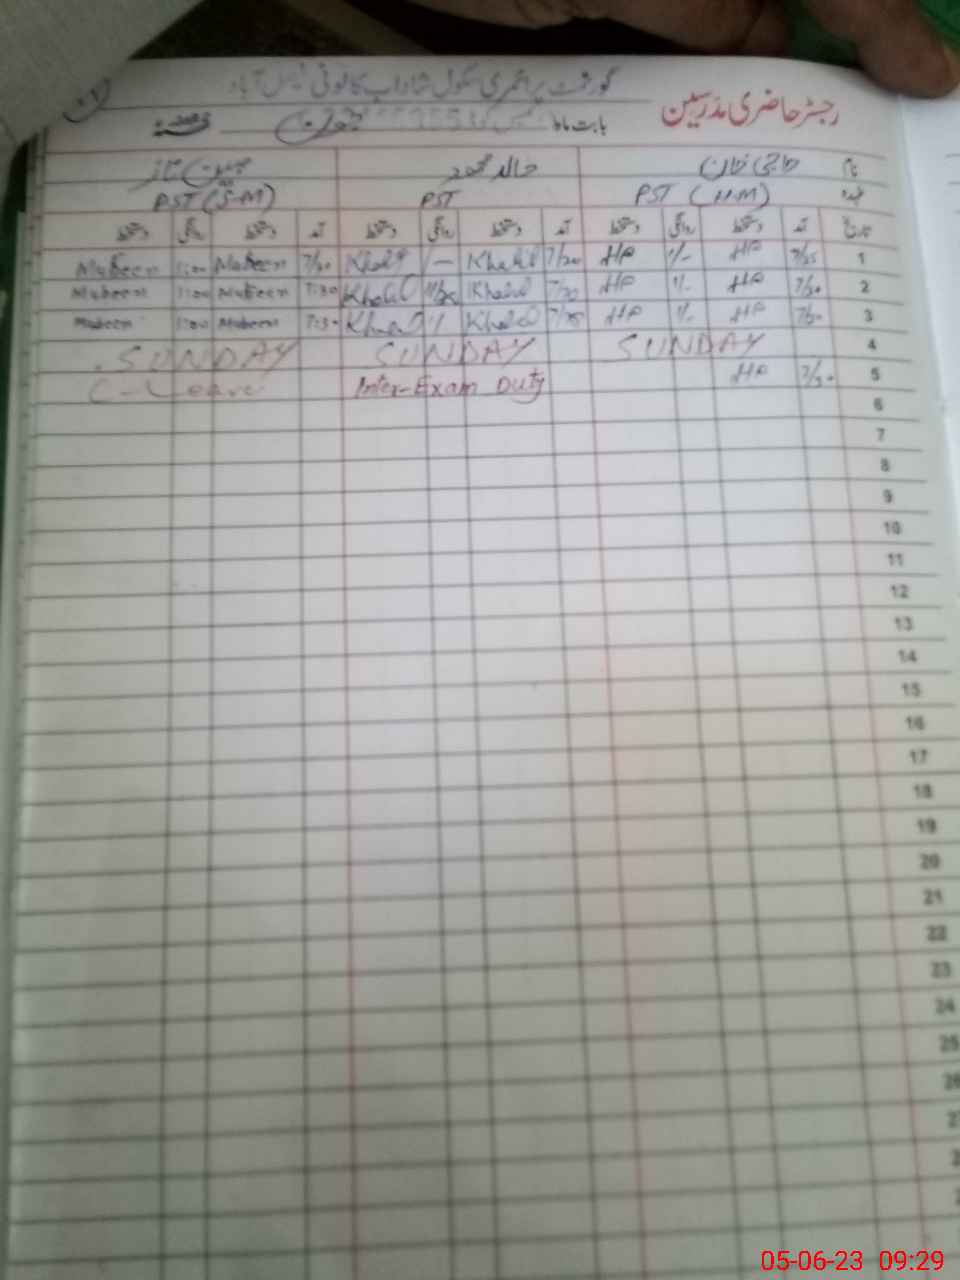 گورنمنٹ پرائمری سکول شاداب کالونی
رجسٹر حاضری مدرسین
بابت ماہ جون
نام حاجی خان خالد محمود
عہدہ PST (H-M) PST PST (S-M)
تاریخ آمد دستخط روانگی دستخط آمد دستخط روانگی دستخط آمد دستخط روانگی دستخط
1 HP 1/- HP 7/20 Khalid 1/- Khalid 7/30 Mubeen 1:00 Mubeen
2 7/30 HP 1/- HP 7/30 Khalid Khalid 7:30 Mubeen 1:00 Mubeen
3 7/30 HP 1/- HP Khalid Khalid 7:30 Mubeen 1:00 Mubeen
4 SUNDAY SUNDAY SUNDAY
5 7/30 HP Inter-Exam Duty C-Leave
6
7
8
9
10
11
12
13
14
15
16
17
18
19
20
21
22
23
24
25
26
05-06-23 09:29